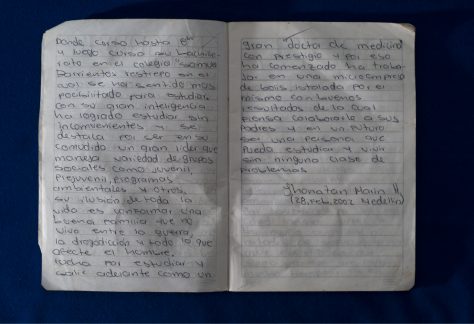 Donde curso hasta 6º
y luego curso su bachille-
rato en el colegio "Samuel
Barrientos restrepo en el
cual se ha sentido muy
posibilitado para estudiar
con su gran inteligencia
ha logrado estudiar sin
Inconvenientes y se
destaca por ser en su
comunidad un gran lider que
maneja variedad de grupos
sociales como juvenil,
Prejuvenil, programas
ambientales y otros.
su ilusion de toda la
vida es conformar una
buena familia que no
viva entre la guerra,
la drogadiccion y todo lo que
afecte el hombre.
lucha por estudiar y
salir adelante como un
gran "doctor de medicina"
con prestigio y por eso
ha comenzado ha traba-
Jar en una microempresa
de bolis, istalada por el
mismo con buenos
resultados de la cual
piensa colaborarle a sus
padres y en un futuro
ser una persona que
pueda estudiar y vivir
sin ninguna clase de
Problemas
Jhonatan Marin
(28, Feb, 2002 Medellin)